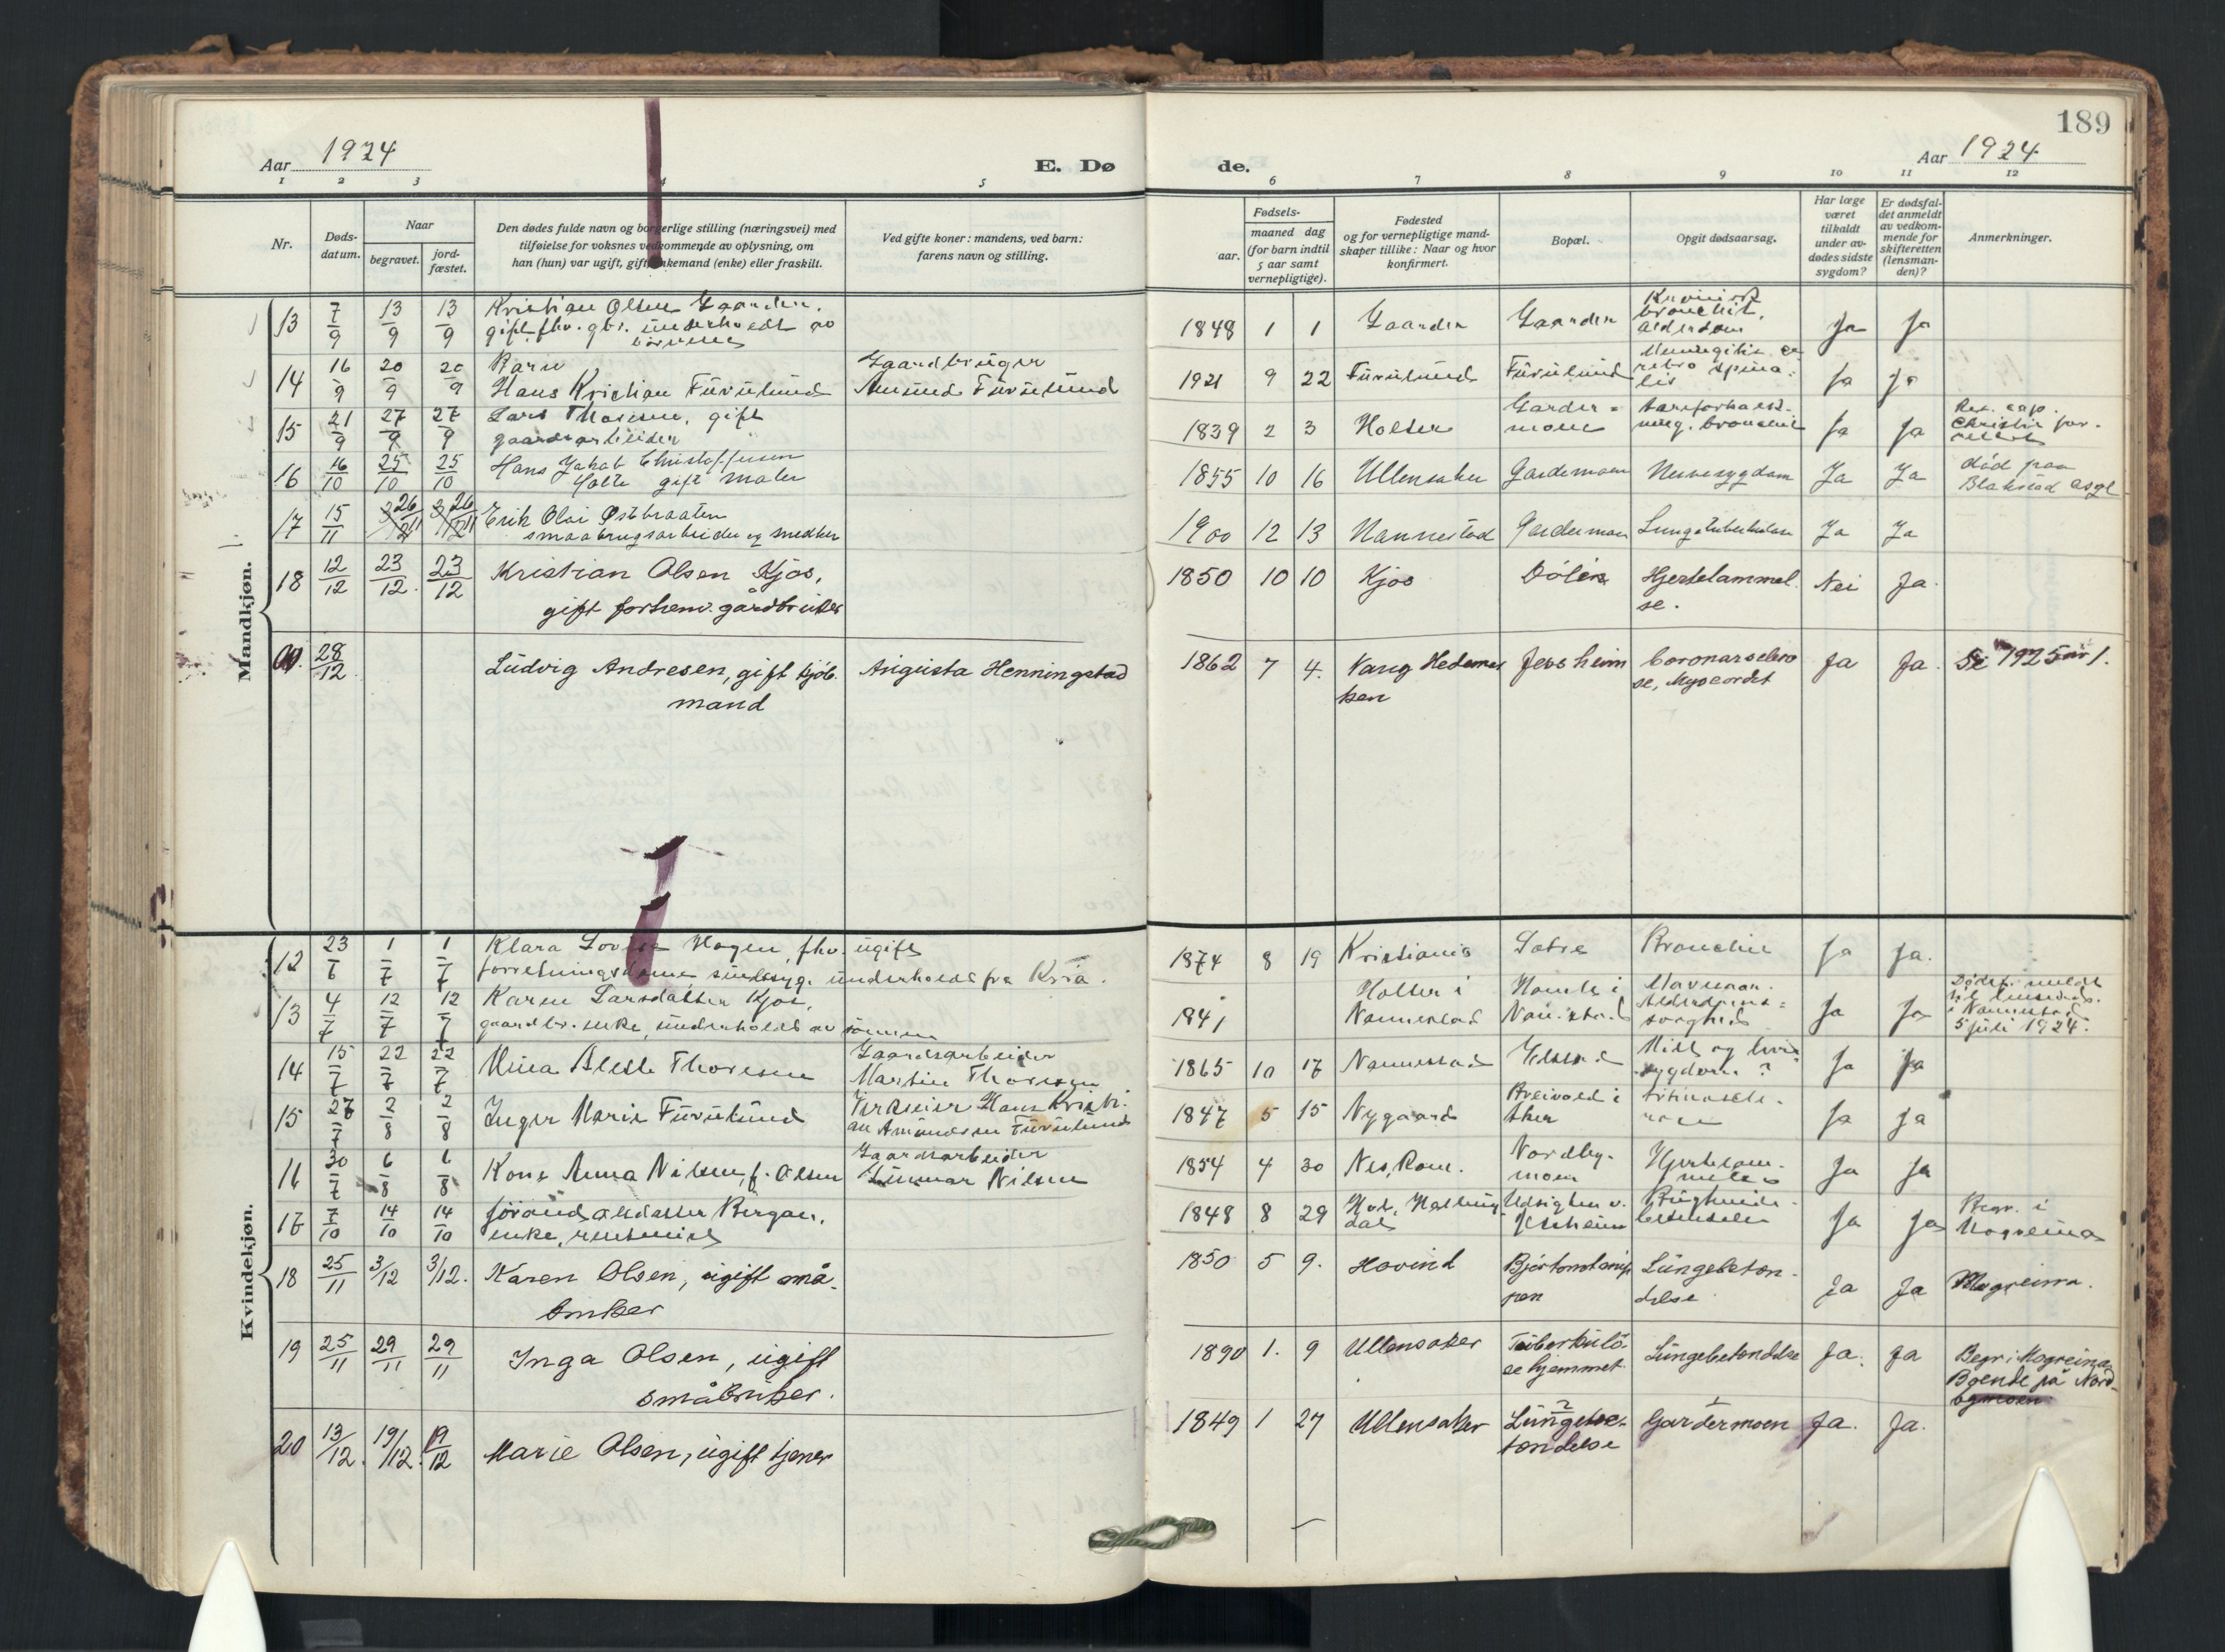 189
Aar 1924
E. Dø
de.
Aar 1924
1 2 3 4 5 6 7 8 9 10 11 12
Nr.
Døds-
datum.
Naar
begravet.
jord-
fæstet.
Den dødes fulde navn og borgerlige stilling (næringsvei) med
tilføielse for voksnes vedkommende av oplysning, om
han (hun) var ugift, gift, enkemand (enke) eller fraskilt.
Ved gifte koner: mandens, ved barn:
farens navn og stilling.
Fødsels-
aar.
maaned dag
(for barn indtil
5 aar samt
vernepligtige).
Fødested
og for vernepligtige mand-
skaper tillike: Naar og hvor
konfirmert.
Bopæl.
Opgit dødsaarsag.
Har læge
været
tilkaldt
under av-
dødes sidste
sygdom?
Er dødsfal-
det anmeldt
av vedkom-
mende for
skifteretten
(lensman-
den)?
Anmerkninger.
Mandkjøn.
13 7/9 13/9 13/9 Kristian Olsen Gaarder.
gift fhv. gbr. underholdt av
børnene
1848 1 1 Gaarder Gaarder
bronchit,
alderdom
Ja Ja
14 16/9 20/9 20/9 Barn
Hans Kristian Furulund
Gaardbruger
Amund Furulund
1921 9 22 Furulund Furulund
Ja Ja
15 21/9 27/9 27/9 Lars Thoresen, gift
gaardsarbeider
1839 2 3 Holter Garder=
moen
bronchit
Ja Ja
16 16/10 25/10 25/10 Hans Jakob Christoffersen
gift maler
1855 10 16 Ullensaker Gardermoen Nervesygdom Ja Ja
død paa
Blakstad asyl
17 15/11 26/11 26/11 Erik Olai Østbraaten
smaabrugsarbeider og snedker
1900 12 13 Nannestad Gardermoen Lungetuberkulose Ja Ja
18 12/12 23/12. 23/12 Kristian Olsen Kjos,
gift forhenv. gårdbruker
1850 10 10 Kjos Dølin Hjertelammel
se.
Nei Ja.
28/12 Ludvig Andresen, gift kjøb.
mand
Augusta Henningstad
1862 7 4. Vang Hedemar
ken
Jessheim Coronarsclero
se, Myocardit
Ja Ja. Se 1925 nr 1.
Kvindekjøn.
12 23/6 1/7 1/7 Klara Lovise Hagen, fhv. ugift
forretningsdame, sindssyg, underholdt fra Kria.
1874 8 19 Kristiania Sobre Bronchit Ja Ja.
13 4/7 12/7 12/7 Karen Larsdatter Kjos,
gaardbr. enke, underholdt av sønnen
1841 Holter i
Nannestad
Ja Ja
i Nannestad
5 juli 1924.
14 15/7 22/7 22/7 Mina Thoresen
Gaardsarbeider
Martin Thoresen
1865 10 17 Nannestad
sygdom?
Ja Ja
15 27/7 2/8 2/8 Inger Marie Furulund
Hans Kristi-
an Amundsen Furulund
1847 5 15 Nygaard Ja Ja
16 30/7 6/8 6/8 Kone Anna Nilsen, f. Olsen
Gaardsarbeider
Gunnar Nilsen
1854 4 30 Nes, Rom. Nordby-
moen
Ja Ja
17 7/10 14/10 14/10 Jørand Olsdatter Bergan,
enke,
1848 8 29 Hol, Halling
dal
Udsigten v.
Jessheim
Ja Ja
Begr. i
Mogreina
18 25/11 3/12 3/12. Karen Olsen, ugift små-
bruker
1850 5 9. Hovind Lungebeten-
delse
Ja Ja Mogreina.
19 25/11 29/11 29/11 Inga Olsen, ugift
småbruker.
1890 1. 9 Ullensaker Tuberkulo
sehjemmet
Lungebetendelse Ja. Ja Begr. i Mogreina
Boende på Nord-
bymoen
20 13/12. 19/12. 19/12 Marie Olsen, ugift tjener
1849 1 27 Ullensaker 2
Lungebe-
tendelse
1
Gardermoen Ja. Ja.